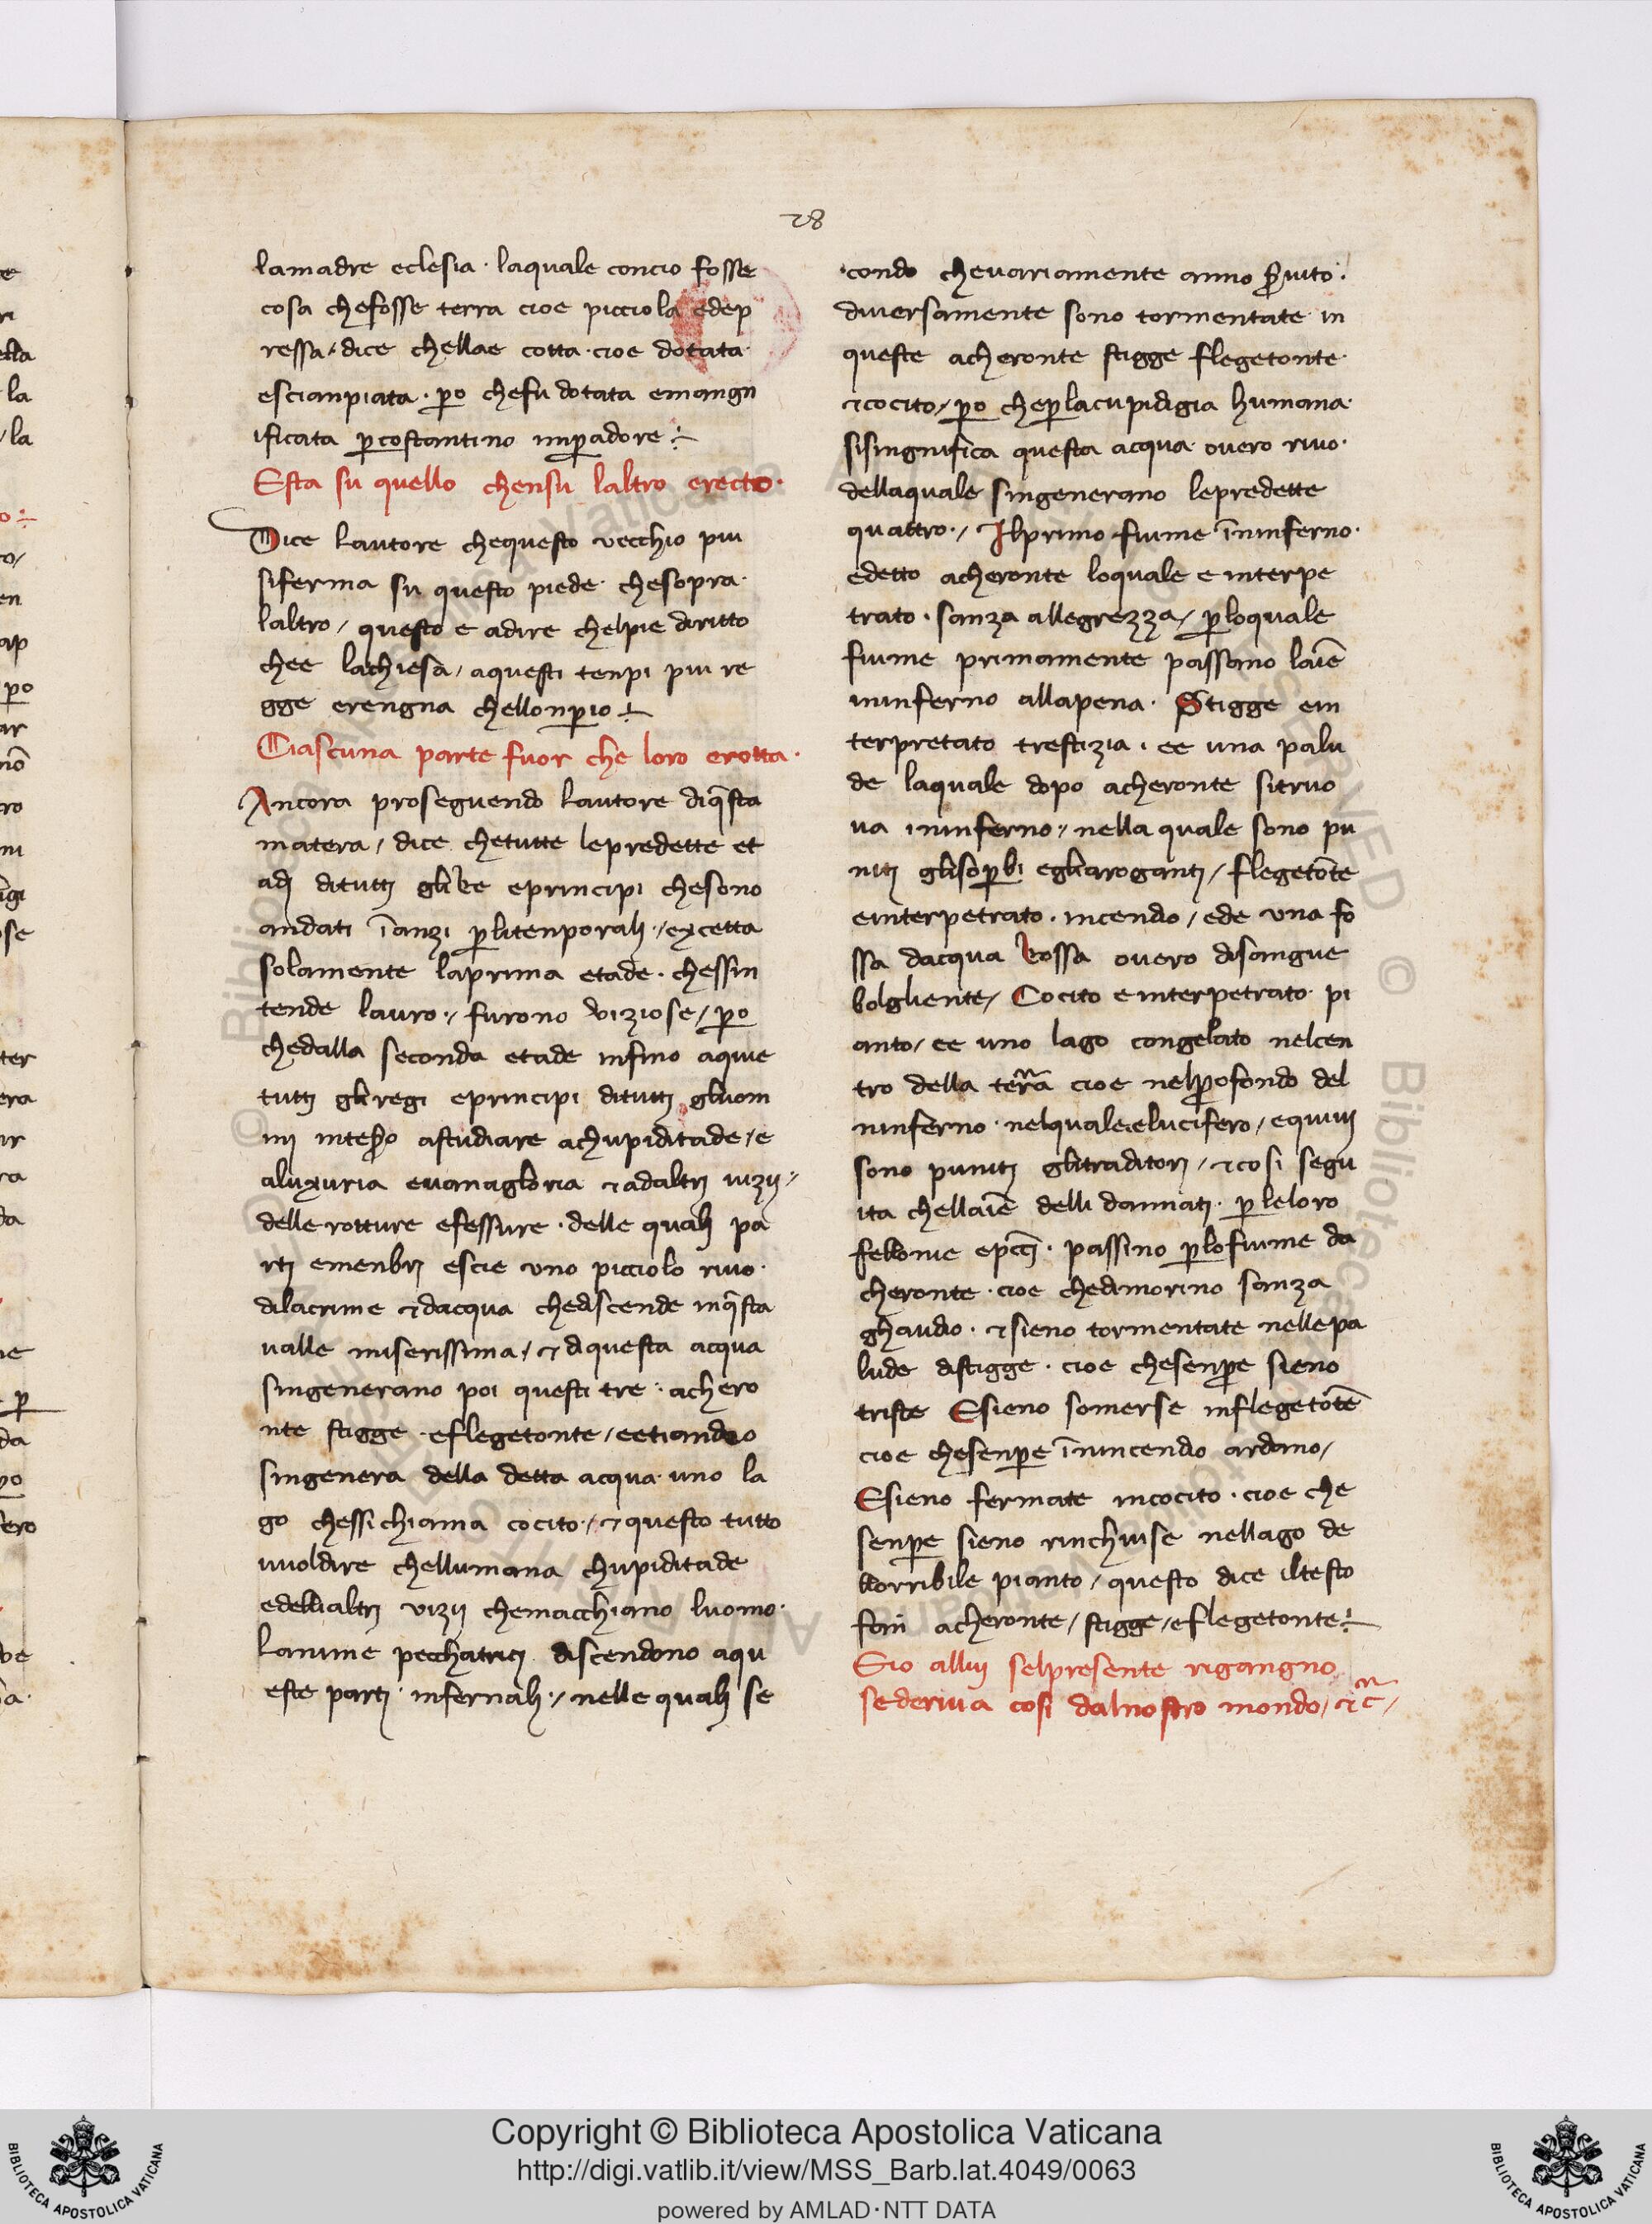 28
lamadre eclesia · laquale concio fosse
cosa chefosse terra cioe picciola edep
ressa / dice chellae cotta · cioe dotata
escianpiata · ꝑo chefu dotata emangn
ificata ꝑcostantino inꝑadore ÷
Esta su quello chensu laltro erecto ·
Dice lautore chequesto vecchio piu
siferma su questo piede chesopra
laltro / questo e adire chelpie diritto
chee lachiesa / aquesti tenpi piu re
gge erengna chellonꝑio ÷
Ciascuna parte fuor che loro erotta ·
Ancora proseguendo lautore diq̄sta
matera / dice chetutte lepredette et
adj ditutti gli re eprincipi chesono
andati īanzi ꝑlitenporali / excetta
solamente laprima etade · chessin
tende lauro / furono viziose / ꝑo
chedalla seconda etade infino aquie
tutti gli regi eprincipi ditutti gliuom
astudiare achupiditade / e
aluxuria euanagloria ⁊ adaltrj uizij /
delle rotture efessure · delle quali pa
rtj emenbrj escie uno picciolo riuo ·
dilacrime ⁊ dacqua chediscende inq̄sta
ualle miserissima / ⁊ diquesta acqua
singenerano poi questi tre · achero
nte stigge · eflegetonte / eetiandio
singenera della detta acqua uno la
go chessi chiama cocito / ⁊ questo tutto
uuoldire chellumana chupiditade
edelli altrj vizij chemacchiano luomo ·
Lanime pecchatricj discendono aqu
este partj infernali / nelle quali se
condo cheuariamente anno ꝑuito ·
diuersamente sono tormentate in
queste acheronte stigge flegetonte
⁊ cocito / ꝑo cheꝑlacupidigia humana
sisingnifica questa acqua ouero riuo ·
dellaquale singenerano lepredette
quattro / Ilprimo fiume īninferno ·
edetto acheronte loquale e interpe
trato · sanza allegrezza / ꝑloquale
fiume primamente passano laīe
ininferno allapena · Stigge ein
terpretato trestizia · ee una palu
de laquale dopo acheronte sitruo
ua ininferno / nella quale sono pu
nitj glisoꝑbi egliarogantj / flegetōte
einterpetrato · incendio / ede una fo
ssa dacqua rossa ouero disangue
bolgliente / Cocito einterpetrato pi
anto / ee uno lago congelato nelcen
tro della terra cioe nelꝓfondo del
ninferno · nelquale elucifero / equiui
sono punitj glitraditorj / ⁊ cosi segu
ita chellaīe delli dannatj · ꝑleloro
fellonie epccj · passino ꝑlofiume da
cheronte · cioe chedimorino sanza
ghaudio · ⁊ sieno tormentate nellepa
lude distigge · cioe chesenꝑe sieno
triste Esieno somerse inflegetōte
cioe chesenꝑe īnincendio ardano /
Esieno fermate incocito · cioe che
senꝑe sieno rinchiuse nellago de
llorribile pianto / questo dice iltesto
fan acheronte / stigge / eflegetonte ÷
Sio allui selpresente rigangno
sederiua cosi dalnostro mondo / ⁊c /
Copyright © Biblioteca Apostolica Vaticana
http://digi.vatlib.it/view/MSS_Barb.lat.4049/0063
powered by AMLAD·NTT DATA
BIBLIOTECA APOSTOLICA VATICANA
BIBLIOTECA APOSTOLICA VATICANA